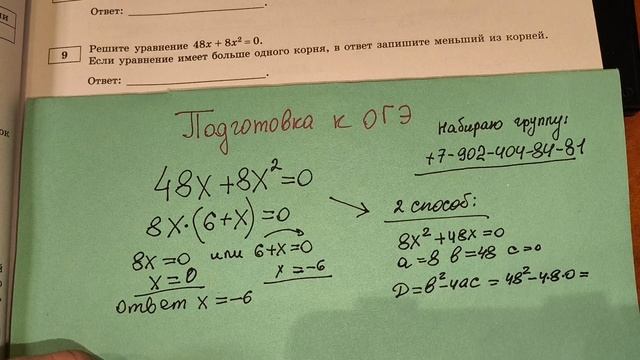 Ответ:
9
Решите уравнение 48x + 8x² = 0.
Если уравнение имеет больше одного корня, в ответ запишите меньший из корней.
Ответ:
Подготовка к ОГЭ
Набираю группу:
+7-902-404-84-81
48x+8x²=0
8x·(6+x)=0
8x=0 или 6+x=0
x=0
x=-6
ответ x=-6
2 способ:
8x²+48x=0
a=8 b=48 c=0
D=b²-4ac=48²-4·8·0=